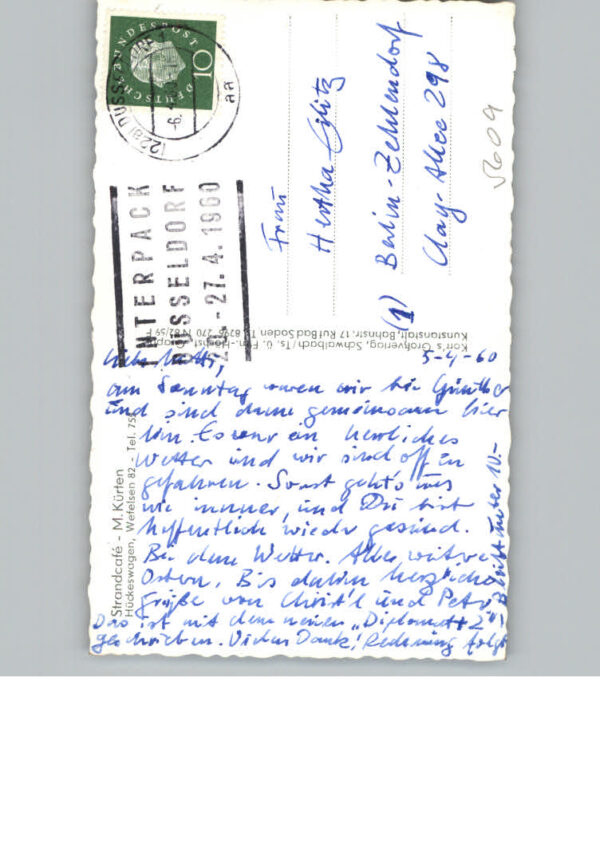 DEUTSCHE BUNDESPOST
10
(22a) DÜSS
-6.
aa
INTERPACK
DÜSSELDORF
-27.4.1960
Frau
Hertha
(1) Berlin-Zehlendorf
Clay-Allee 298
5609
Korr's Großverlag, Schwalbach/Ts. ü. Ffm.-Höchst,
Kunstanstalt, Bahnstr. 17 Ruf Bad Soden
Strandcafé - M. Kürten
Hückeswagen, Wefelsen 82 - Tel. 75
5-4-60
Liebe Mutti,
am Sonntag waren wir bei Günther
und sind dann gemeinsam hier
hin. Es war ein herrliches
Wetter und wir sind offen
gefahren. Sonst geht's uns
wie immer, und Du bist
hoffentlich wieder gesund.
Bei dem Wetter. Alles weitere
Ostern. Bis dahin herzliche
Grüße von Christ'l und Peter
Das ist mit dem neuen „Diplomat 2"
geschrieben. Vielen Dank! Rechnung folgt
unter 10.-